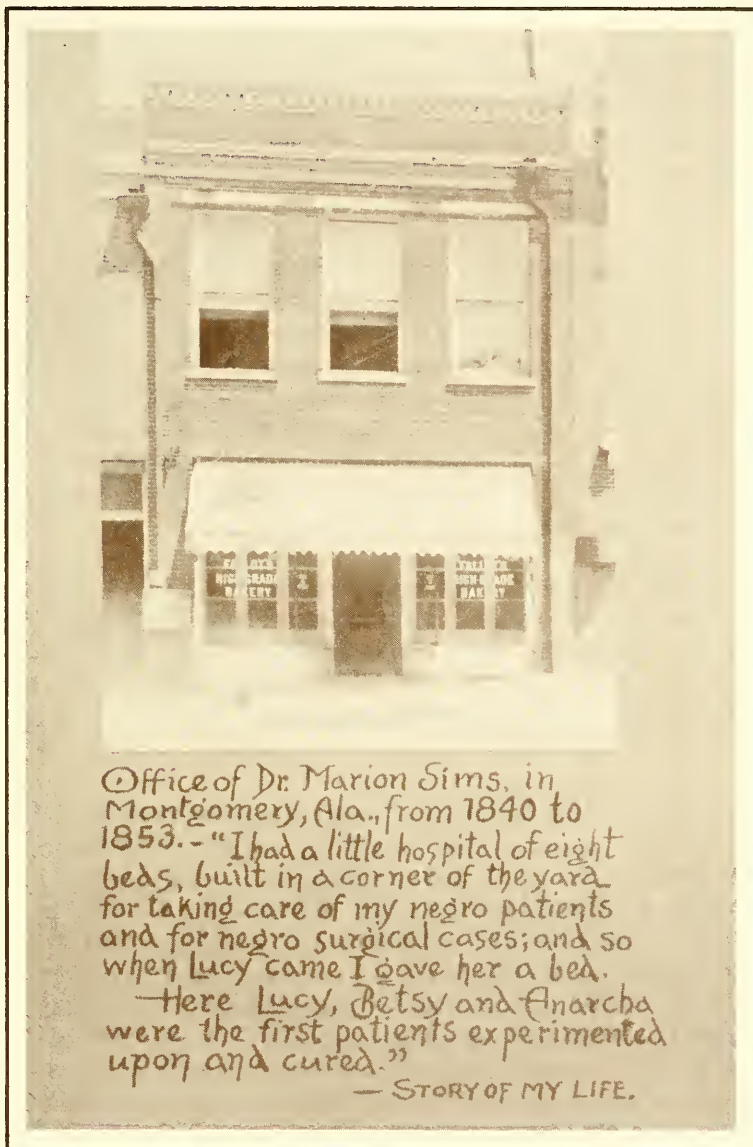 HIGH GRADE
BAKERY
HIGH GRADE
BAKERY
Office of Dr. Marion Sims, in
Montgomery, Ala., from 1840 to
1853.- "I had a little hospital of eight
beds, built in a corner of the yard
for taking care of my negro patients
and for negro surgical cases; and so
when Lucy came I gave her a bed.
Here Lucy, Betsy and Anarcha
were the first patients experimented
upon and cured."
— STORY OF MY LIFE.